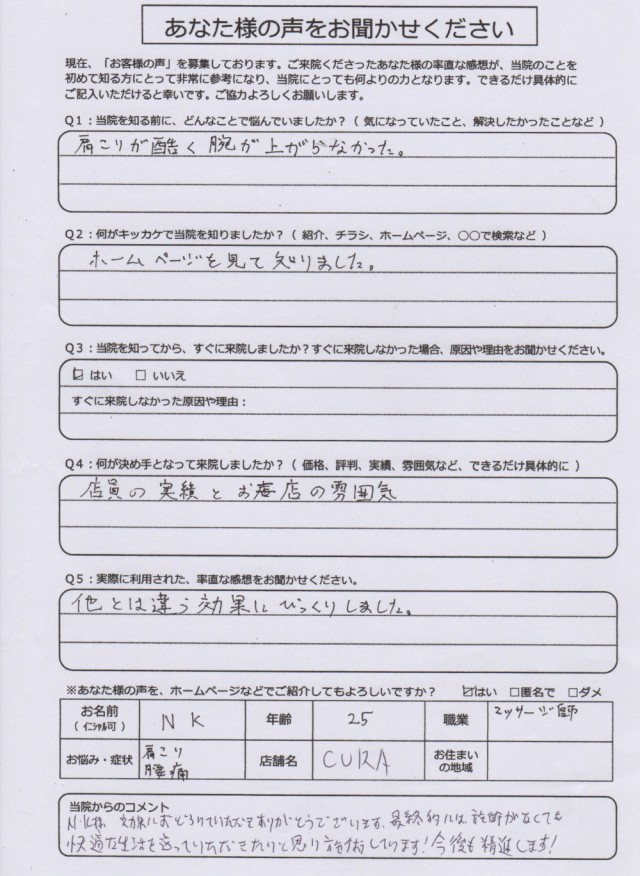 あなた様の声をお聞かせください
現在、「お客様の声」を募集しております。ご来院くださったあなた様の率直な感想が、当院のことを
初めて知る方にとって非常に参考になり、当院にとっても何よりの力となります。できるだけ具体的に
ご記入いただけると幸いです。ご協力よろしくお願いします。
Q1：当院を知る前に、どんなことで悩んでいましたか？（ 気になっていたこと、解決したかったことなど ）
肩こりが酷く腕が上がらなかった。
Q2：何がキッカケで当院を知りましたか？（ 紹介、チラシ、ホームページ、○○で検索など ）
ホームページを見て知りました。
Q3：当院を知ってから、すぐに来院しましたか？すぐに来院しなかった場合、原因や理由をお聞かせください。
☑ はい □ いいえ
すぐに来院しなかった原因や理由：
Q4：何が決め手となって来院しましたか？（ 価格、評判、実績、雰囲気など、できるだけ具体的に ）
店員の実績とお店の雰囲気
Q5：実際に利用された、率直な感想をお聞かせください。
他とは違う効果にびっくりしました。
※あなた様の声を、ホームページなどでご紹介してもよろしいですか？ ☑はい □匿名で □ダメ
お名前 NK 年齢 25 職業 マッサージ師
（イニシャル可）
お悩み・症状 肩こり 腰痛 店舗名 CURA お住まいの地域
当院からのコメント
N・K様、効果におどろいていただきありがとうございます。最終的には施術がなくても
快適な生活を送っていただきたいと思い施術しています！今後も精進します！